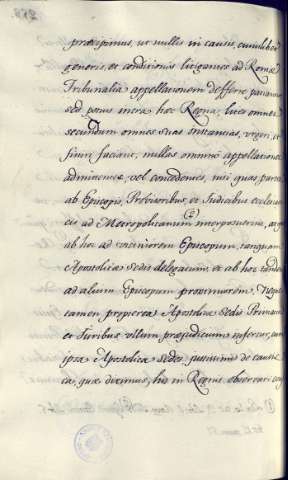 præcipimus, ut nullis in causis, cuiuslibet
generis, et conditionis litigantes ad Romæ
Tribunalia appellationem defferre patiantur
sed potius intra hoc Regna, lites omnes
secundum omnes suas instantias, urgeri, et
finiri faciant, nullas omnino appellationes
admittentes, vel concedentes, nisi quas partes
ab Episcopis, Prioribus, et Iudicibus ecclesias
cis ad Metropolitanum interposuerint, atq
ab hoc ad viciniorem Episcopum, tanquam
Apostolicæ Sedis delegatum, et ab hoc tandem
ad alium Episcopum proximiorem. Neque
tamen propterea Apostolicæ Sedis Primatui
et Iuribus ullum præjudicium infertur, cum
ipsa Apostolica Sedes justissimis de causis
ca, quæ diximus, his in Regnis observari